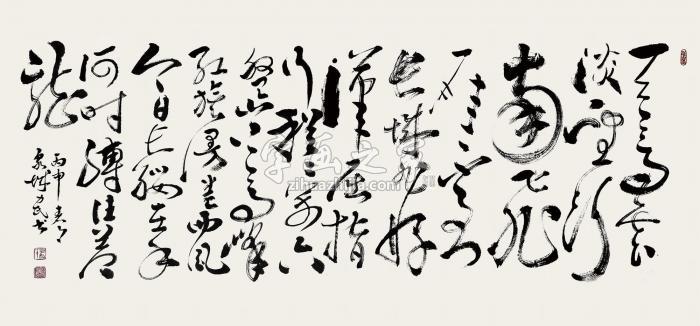 天高雲
淡望断
南飞
雁不到
长城非好
漢屈指
行程二万六
盘山上高峰
红旗漫卷西风
今日长缨在手
何时缚住苍
龍
丙申
泉城力民书
字画之家
zihuazhijia.com